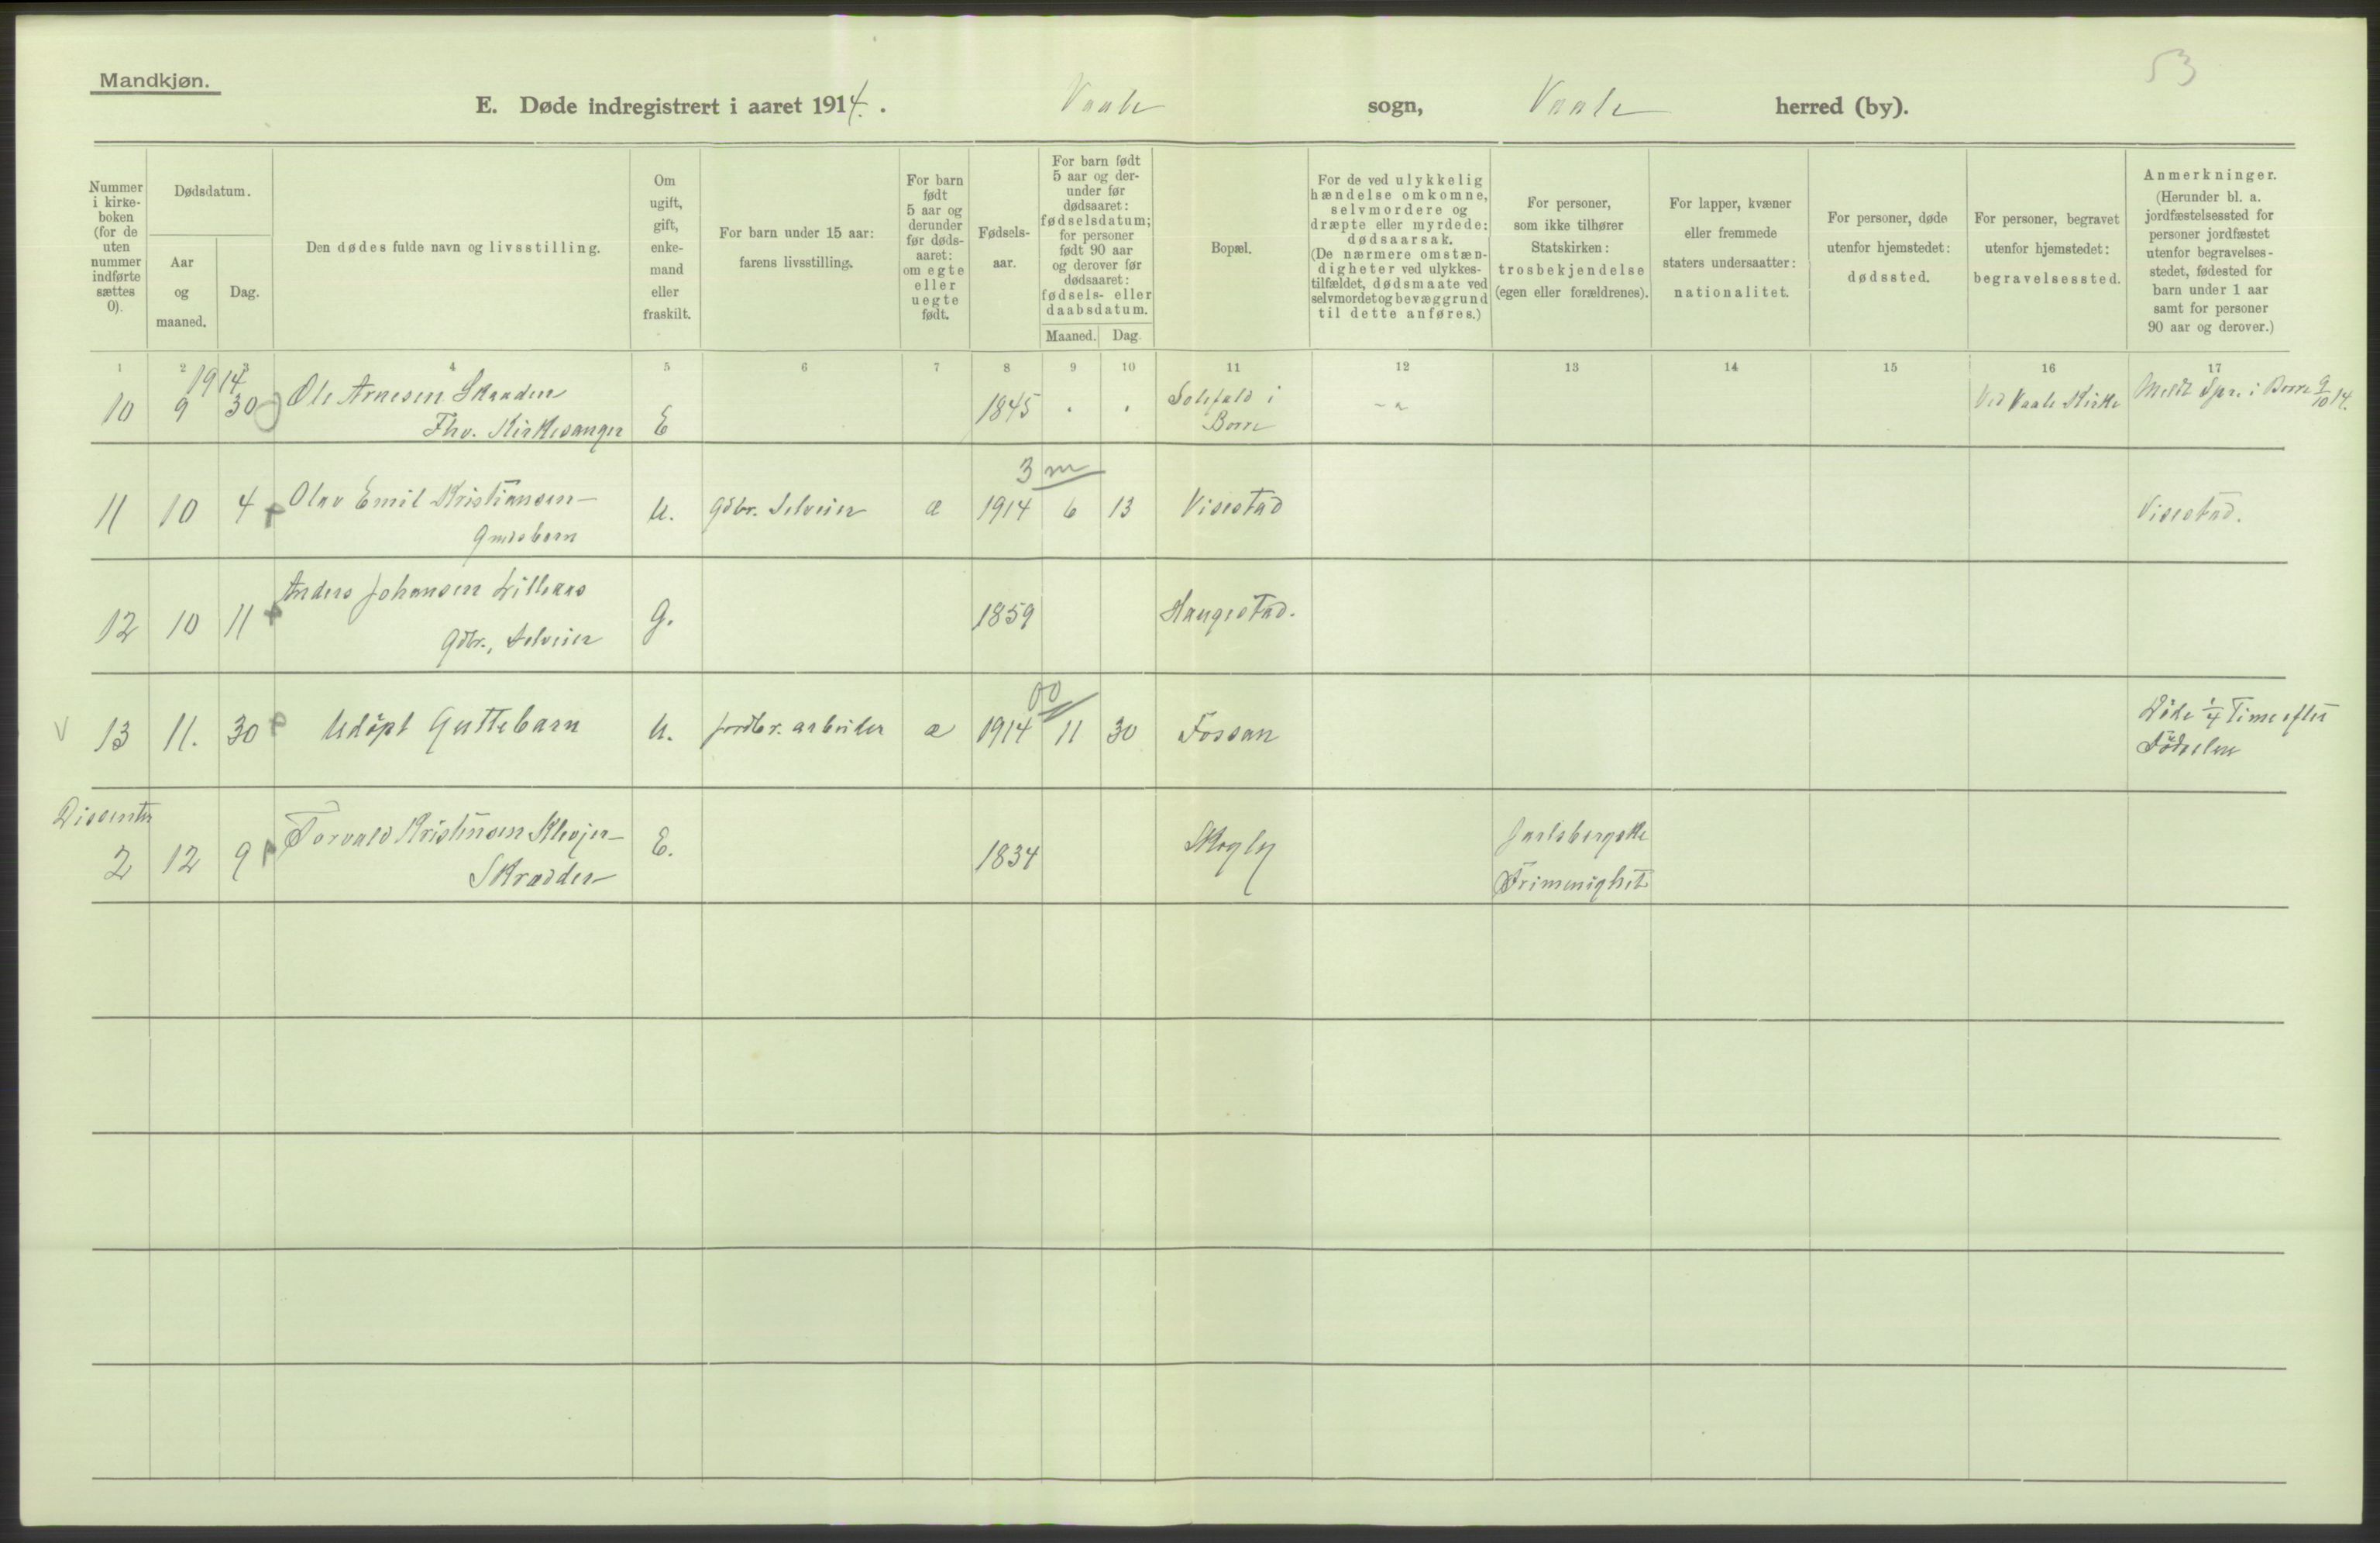 53
Mandkjøn.
E. Døde indregistrert i aaret 1914. Vaale sogn, Vaale herred (by).
Nummer i kirke-boken (for de uten nummer indførte sættes 0).
Dødsdatum.
Aar og maaned.
Dag.
Den dødes fulde navn og livsstilling.
Om ugift, gift, enke-mand eller fraskilt.
For barn under 15 aar: farens livsstilling.
For barn født 5 aar og derunder før døds-aaret: om egte eller uegte født.
Fødsels-aar.
For barn født 5 aar og der-under før dødsaaret: fødselsdatum; for personer født 90 aar og derover før dødsaaret: fødsels- eller daabsdatum.
Maaned. Dag.
Bopæl.
For de ved ulykkelig hændelse omkomne, selvmordere og dræpte eller myrdede: dødsaarsak. (De nærmere omstæn-digheter ved ulykkes-tilfældet, dødsmaate ved selvmordet og bevæggrund til dette anføres.)
For personer, som ikke tilhører Statskirken: trosbekjendelse (egen eller forældrenes).
For lapper, kvæner eller fremmede staters undersaatter: nationalitet.
For personer, døde utenfor hjemstedet: dødssted.
For personer, begravet utenfor hjemstedet: begravelsessted.
Anmerkninger. (Herunder bl. a. jordfæstelsessted for personer jordfæstet utenfor begravelses-stedet, fødested for barn under 1 aar samt for personer 90 aar og derover.)
1 2 3 4 5 6 7 8 9 10 11 12 13 14 15 16 17
1914
10 9 30 Ole Arnesen Skaaden
Fhv. Kirkesanger E 1845 . . Solefald i
Borre
Ved Vaale Kirke
Meldt Spr. i Borre 9/10 14.
3 m
11 10 4 Olav Emil Kristiansen
Gaardsbarn U. Gdbr. Selveier æ 1914 6 13 Visestad Visestad.
12 10 11 Anders Johansen Lilleaas
Gdbr., Selveier G. 1859 Haugestad.
00
V 13 11. 30 Udøpt Guttebarn U. Jordbr. arbeider æ 1914 11 30 Fossan
Døde 1/4 Time efter
Fødselen
Dissenter
2 12 9 Torvald Kristensen Klevjer
Skrædder E. 1834 Skogly
Jarlsbergske
Frimenighet